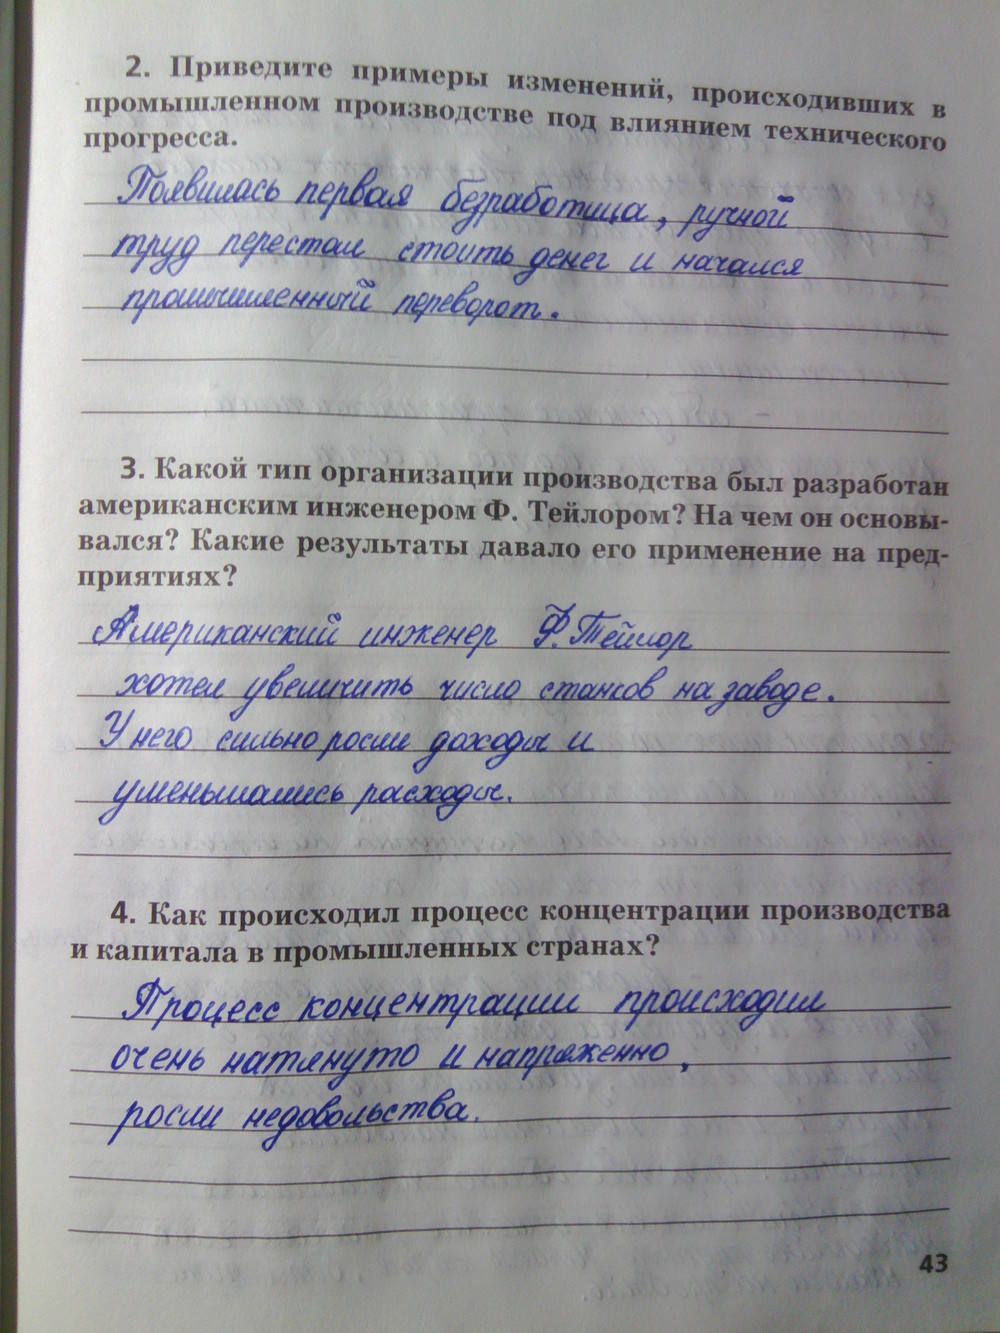 2. Приведите примеры изменений, происходивших в
промышленном производстве под влиянием технического
прогресса.
Появилась первая безработица, ручной
труд перестал стоить денег и начался
промышленный переворот.
3. Какой тип организации производства был разработан
американским инженером Ф. Тейлором? На чем он основы-
вался? Какие результаты давало его применение на пред-
приятиях?
Американский инженер Ф. Тейлор
хотел увеличить число станков на заводе.
У него сильно росли доходы и
уменьшались расходы.
4. Как происходил процесс концентрации производства
и капитала в промышленных странах?
Процесс концентрации происходил
очень натянуто и напряженно,
росли недовольства.
43